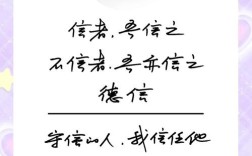 信者,吾信之
不信者,吾亦信之
德信
守信的人,我信任他